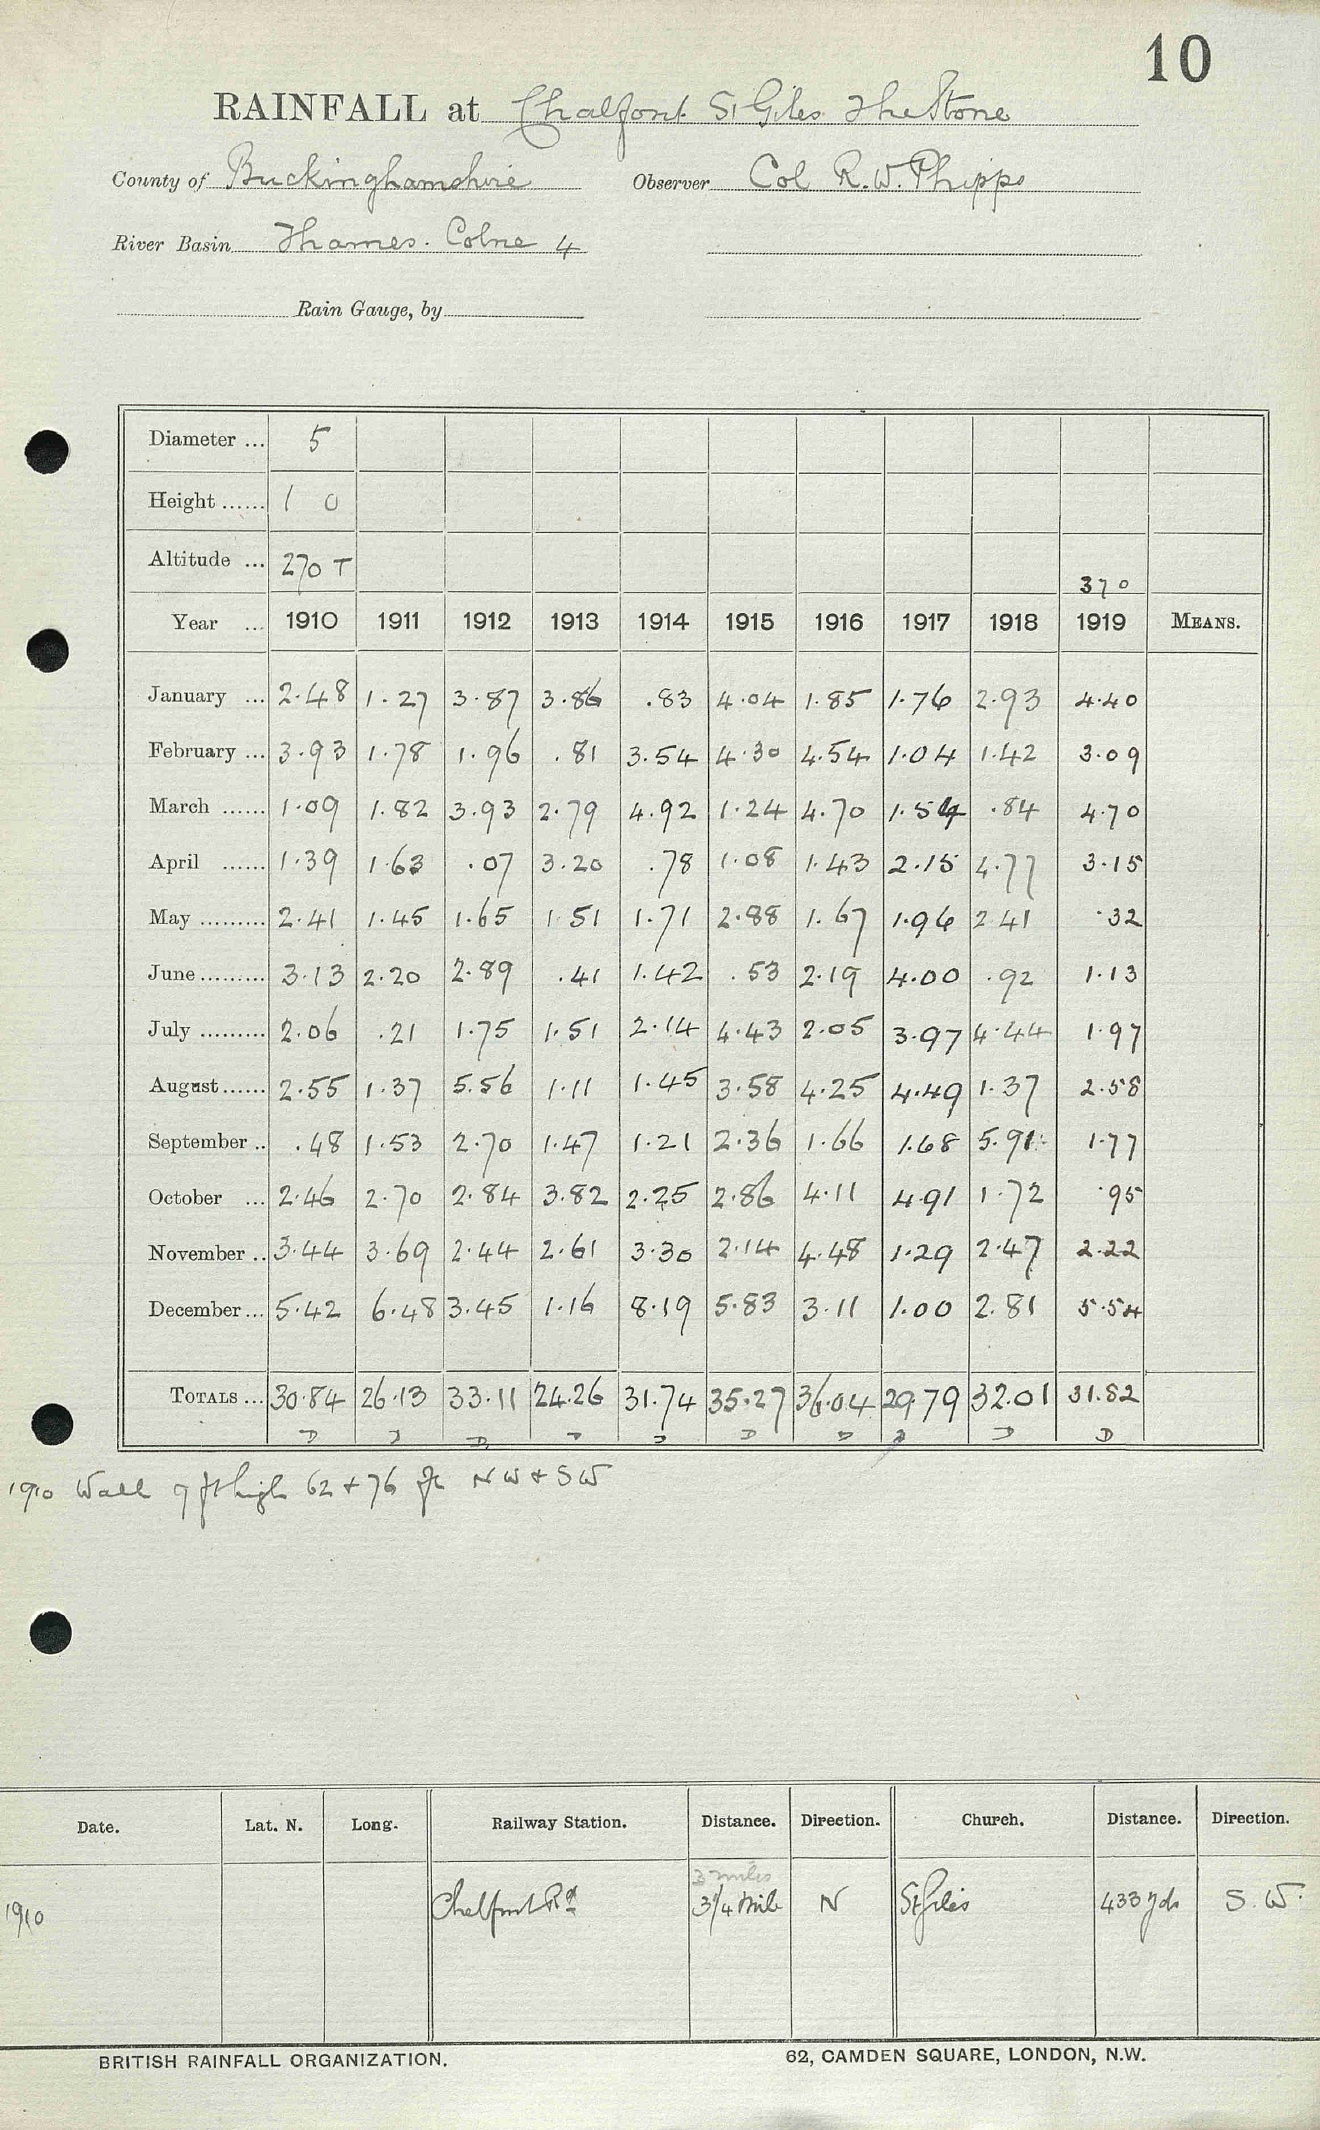 10
RAINFALL at Chalfont St Giles The Stone
County of Buckinghamshire Observer Col R.W. Phipps
River Basin Thames. Colne 4
Rain Gauge, by
Diameter ... 5
Height ...... 1 0
Altitude ... 270 T 370
Year ... 1910 1911 1912 1913 1914 1915 1916 1917 1918 1919 MEANS.
January ... 2.48 1.27 3.87 3.86 .83 4.04 1.85 1.76 2.93 4.40
February ... 3.93 1.78 1.96 .81 3.54 4.30 4.54 1.04 1.42 3.09
March ...... 1.09 1.82 3.93 2.79 4.92 1.24 4.70 1.54 .84 4.70
April ...... 1.39 1.63 .07 3.20 .78 1.08 1.43 2.15 4.77 3.15
May ......... 2.41 1.45 1.65 1.51 1.71 2.88 1.67 1.96 2.41 .32
June ......... 3.13 2.20 2.89 .41 1.42 .53 2.19 4.00 .92 1.13
July ......... 2.06 .21 1.75 1.51 2.14 4.43 2.05 3.97 4.44 1.97
August ...... 2.55 1.37 5.56 1.11 1.45 3.58 4.25 4.49 1.37 2.58
September .. .48 1.53 2.70 1.47 1.21 2.36 1.66 1.68 5.91 1.77
October ... 2.46 2.70 2.84 3.82 2.25 2.86 4.11 4.91 1.72 .95
November .. 3.44 3.69 2.44 2.61 3.30 2.14 4.48 1.29 2.47 2.22
December ... 5.42 6.48 3.45 1.16 8.19 5.83 3.11 1.00 2.81 5.54
TOTALS ... 30.84 26.13 33.11 24.26 31.74 35.27 36.04 29.79 32.01 31.82
1910 Wall 9 ft high 62 + 76 ft NW + SW
Date. Lat. N. Long. Railway Station. Distance. Direction. Church. Distance. Direction.
3 miles
1910 Chalfont Rd 3/4 Mile N St Giles 433 yds S.W.
BRITISH RAINFALL ORGANIZATION. 62, CAMDEN SQUARE, LONDON, N.W.